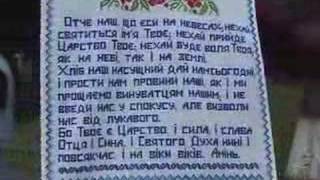 Отче наш, що єси на небесах, нехай
святиться ім'я Твоє; нехай прийде
Царство Твоє; нехай буде воля Твоя
як на небі, так і на землі.
Хліб наш насущний дай нам сьогодні
і прости нам провини наші, як і ми
прощаємо винуватцям нашим, і не
введи нас у спокусу, але визволи
нас від лукавого.
Бо Твоє є Царство, і сила, і слава
Отця і Сина, і Святого Духа нині і
повсякчас, і на віки віків. Амінь.